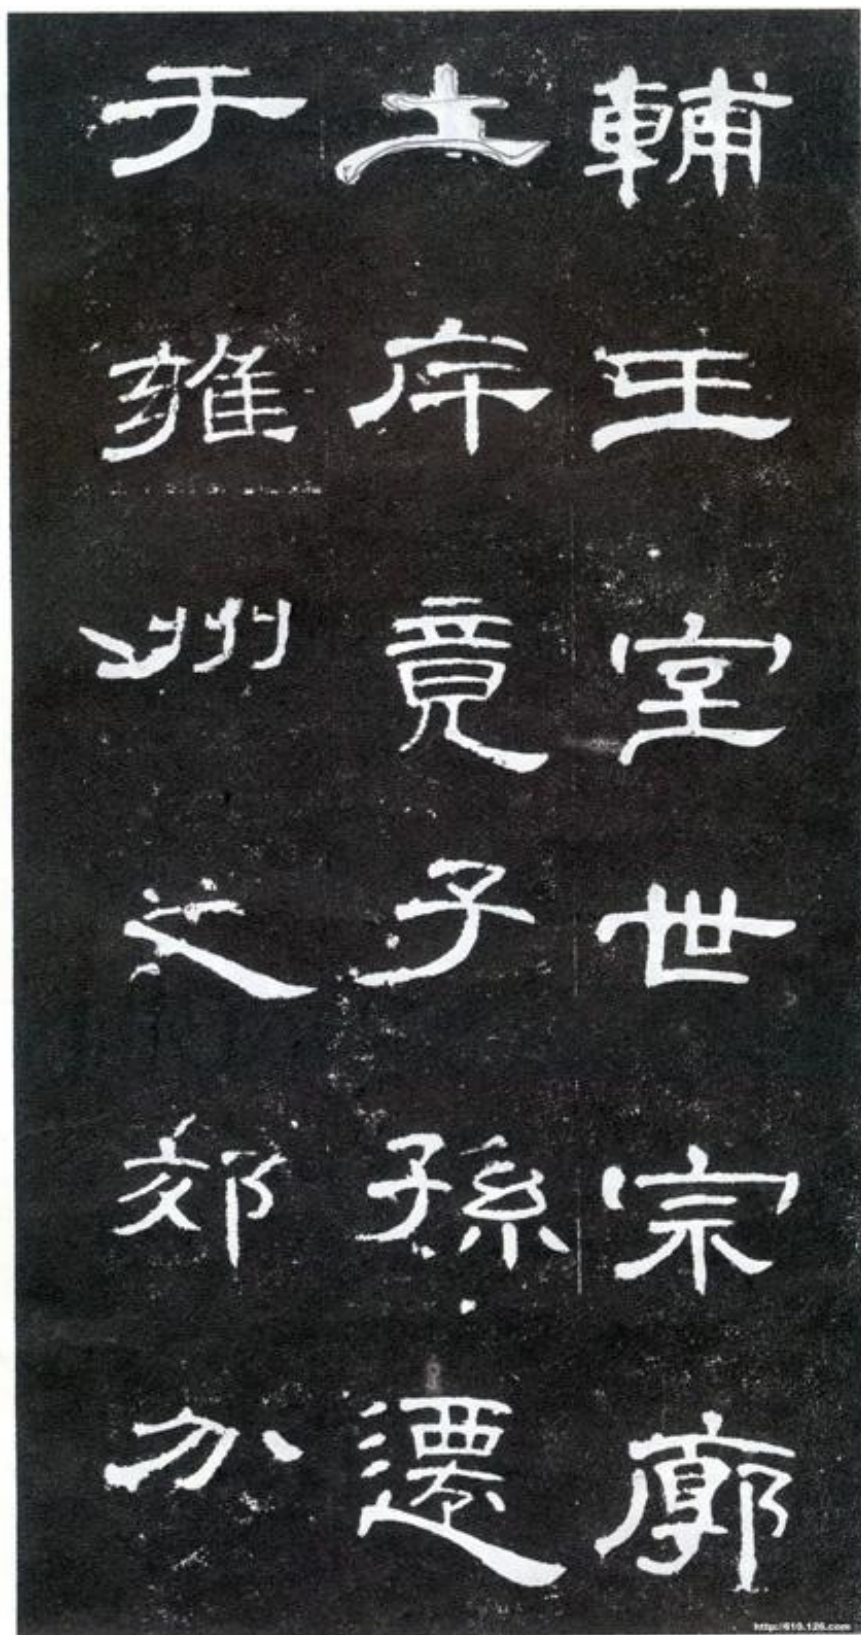 輔王室世宗廓
土斥竟子孫遷
于雍州之郊分
http://610.126.com